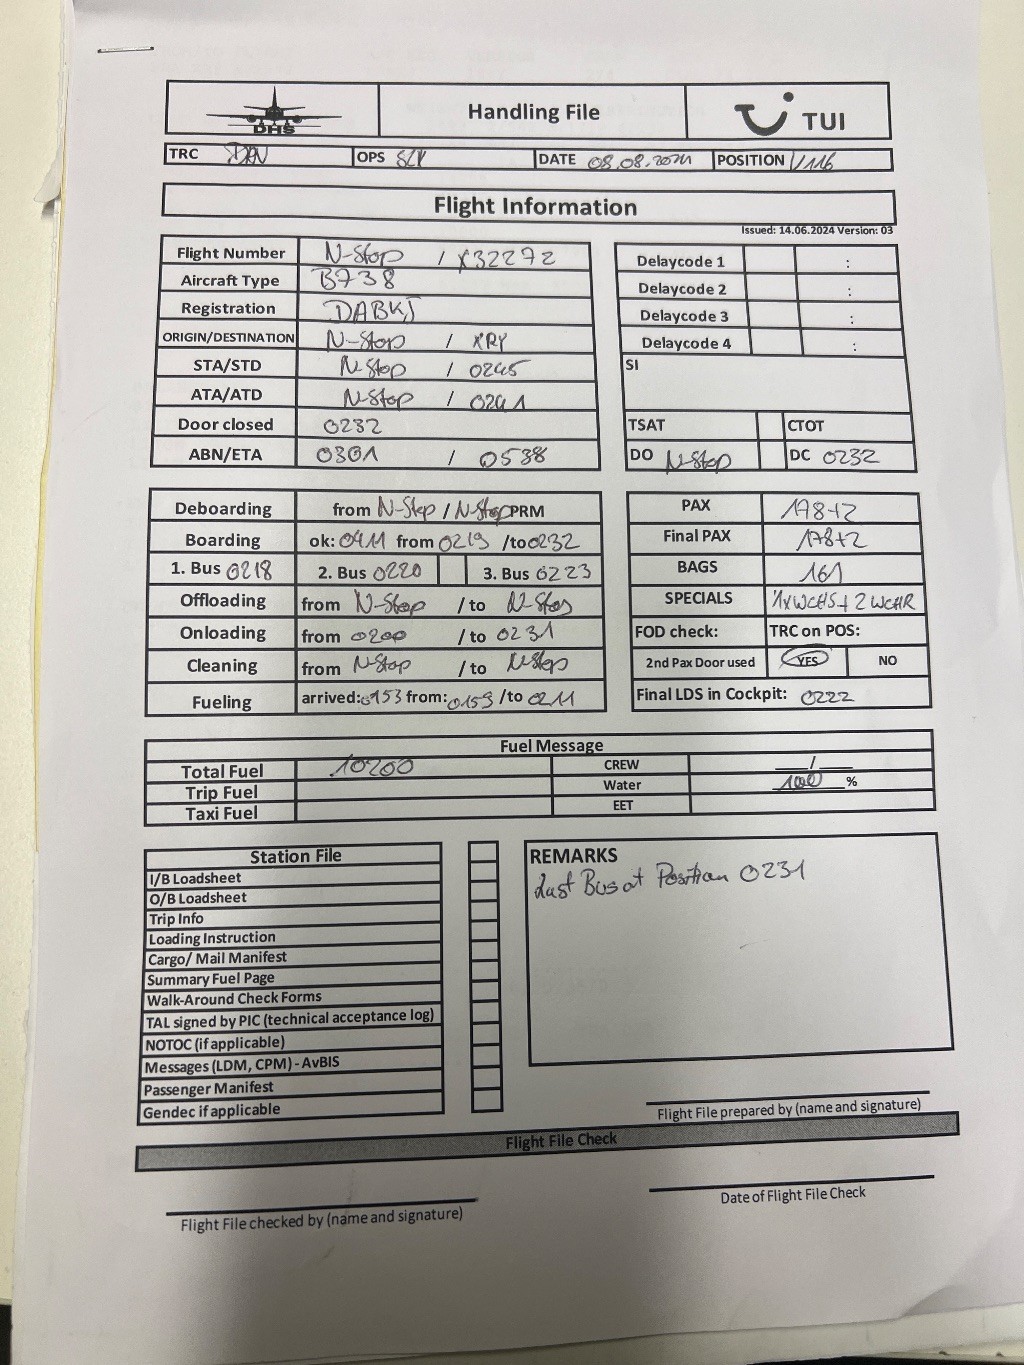 DHS
Handling File
TUI
TRC DAN OPS SLV DATE 08.08.2024 POSITION V116
Flight Information
Issued: 14.06.2024 Version: 03
Flight Number N-Stop / X32272
Aircraft Type B738
Registration DABKJ
ORIGIN/DESTINATION N-Stop / XRY
STA/STD N-Stop / 0245
ATA/ATD N-Stop / 0241
Door closed 0232
ABN/ETA 0301 / 0538
Delaycode 1 :
Delaycode 2 :
Delaycode 3 :
Delaycode 4 :
SI
TSAT CTOT
DO N-Stop DC 0232
Deboarding from N-Stop / N-Stop PRM
Boarding ok: 0411 from 0219 /to 0232
1. Bus 0218 2. Bus 0220 3. Bus 0223
Offloading from N-Stop / to N-Stop
Onloading from 0200 / to 0231
Cleaning from N-Stop / to N-Stop
Fueling arrived: 0153 from: 0159 /to 0211
PAX 178+2
Final PAX 178+2
BAGS 161
SPECIALS 1xWCHS + 2 WCHR
FOD check: TRC on POS:
2nd Pax Door used YES NO
Final LDS in Cockpit: 0222
Fuel Message
Total Fuel 10200 CREW /
Trip Fuel Water 100 %
Taxi Fuel EET
Station File
I/B Loadsheet
O/B Loadsheet
Trip Info
Loading Instruction
Cargo/ Mail Manifest
Summary Fuel Page
Walk-Around Check Forms
TAL signed by PIC (technical acceptance log)
NOTOC (if applicable)
Messages (LDM, CPM) - AvBIS
Passenger Manifest
Gendec if applicable
REMARKS
Last Bus at Position 0231
Flight File prepared by (name and signature)
Flight File Check
Flight File checked by (name and signature)
Date of Flight File Check